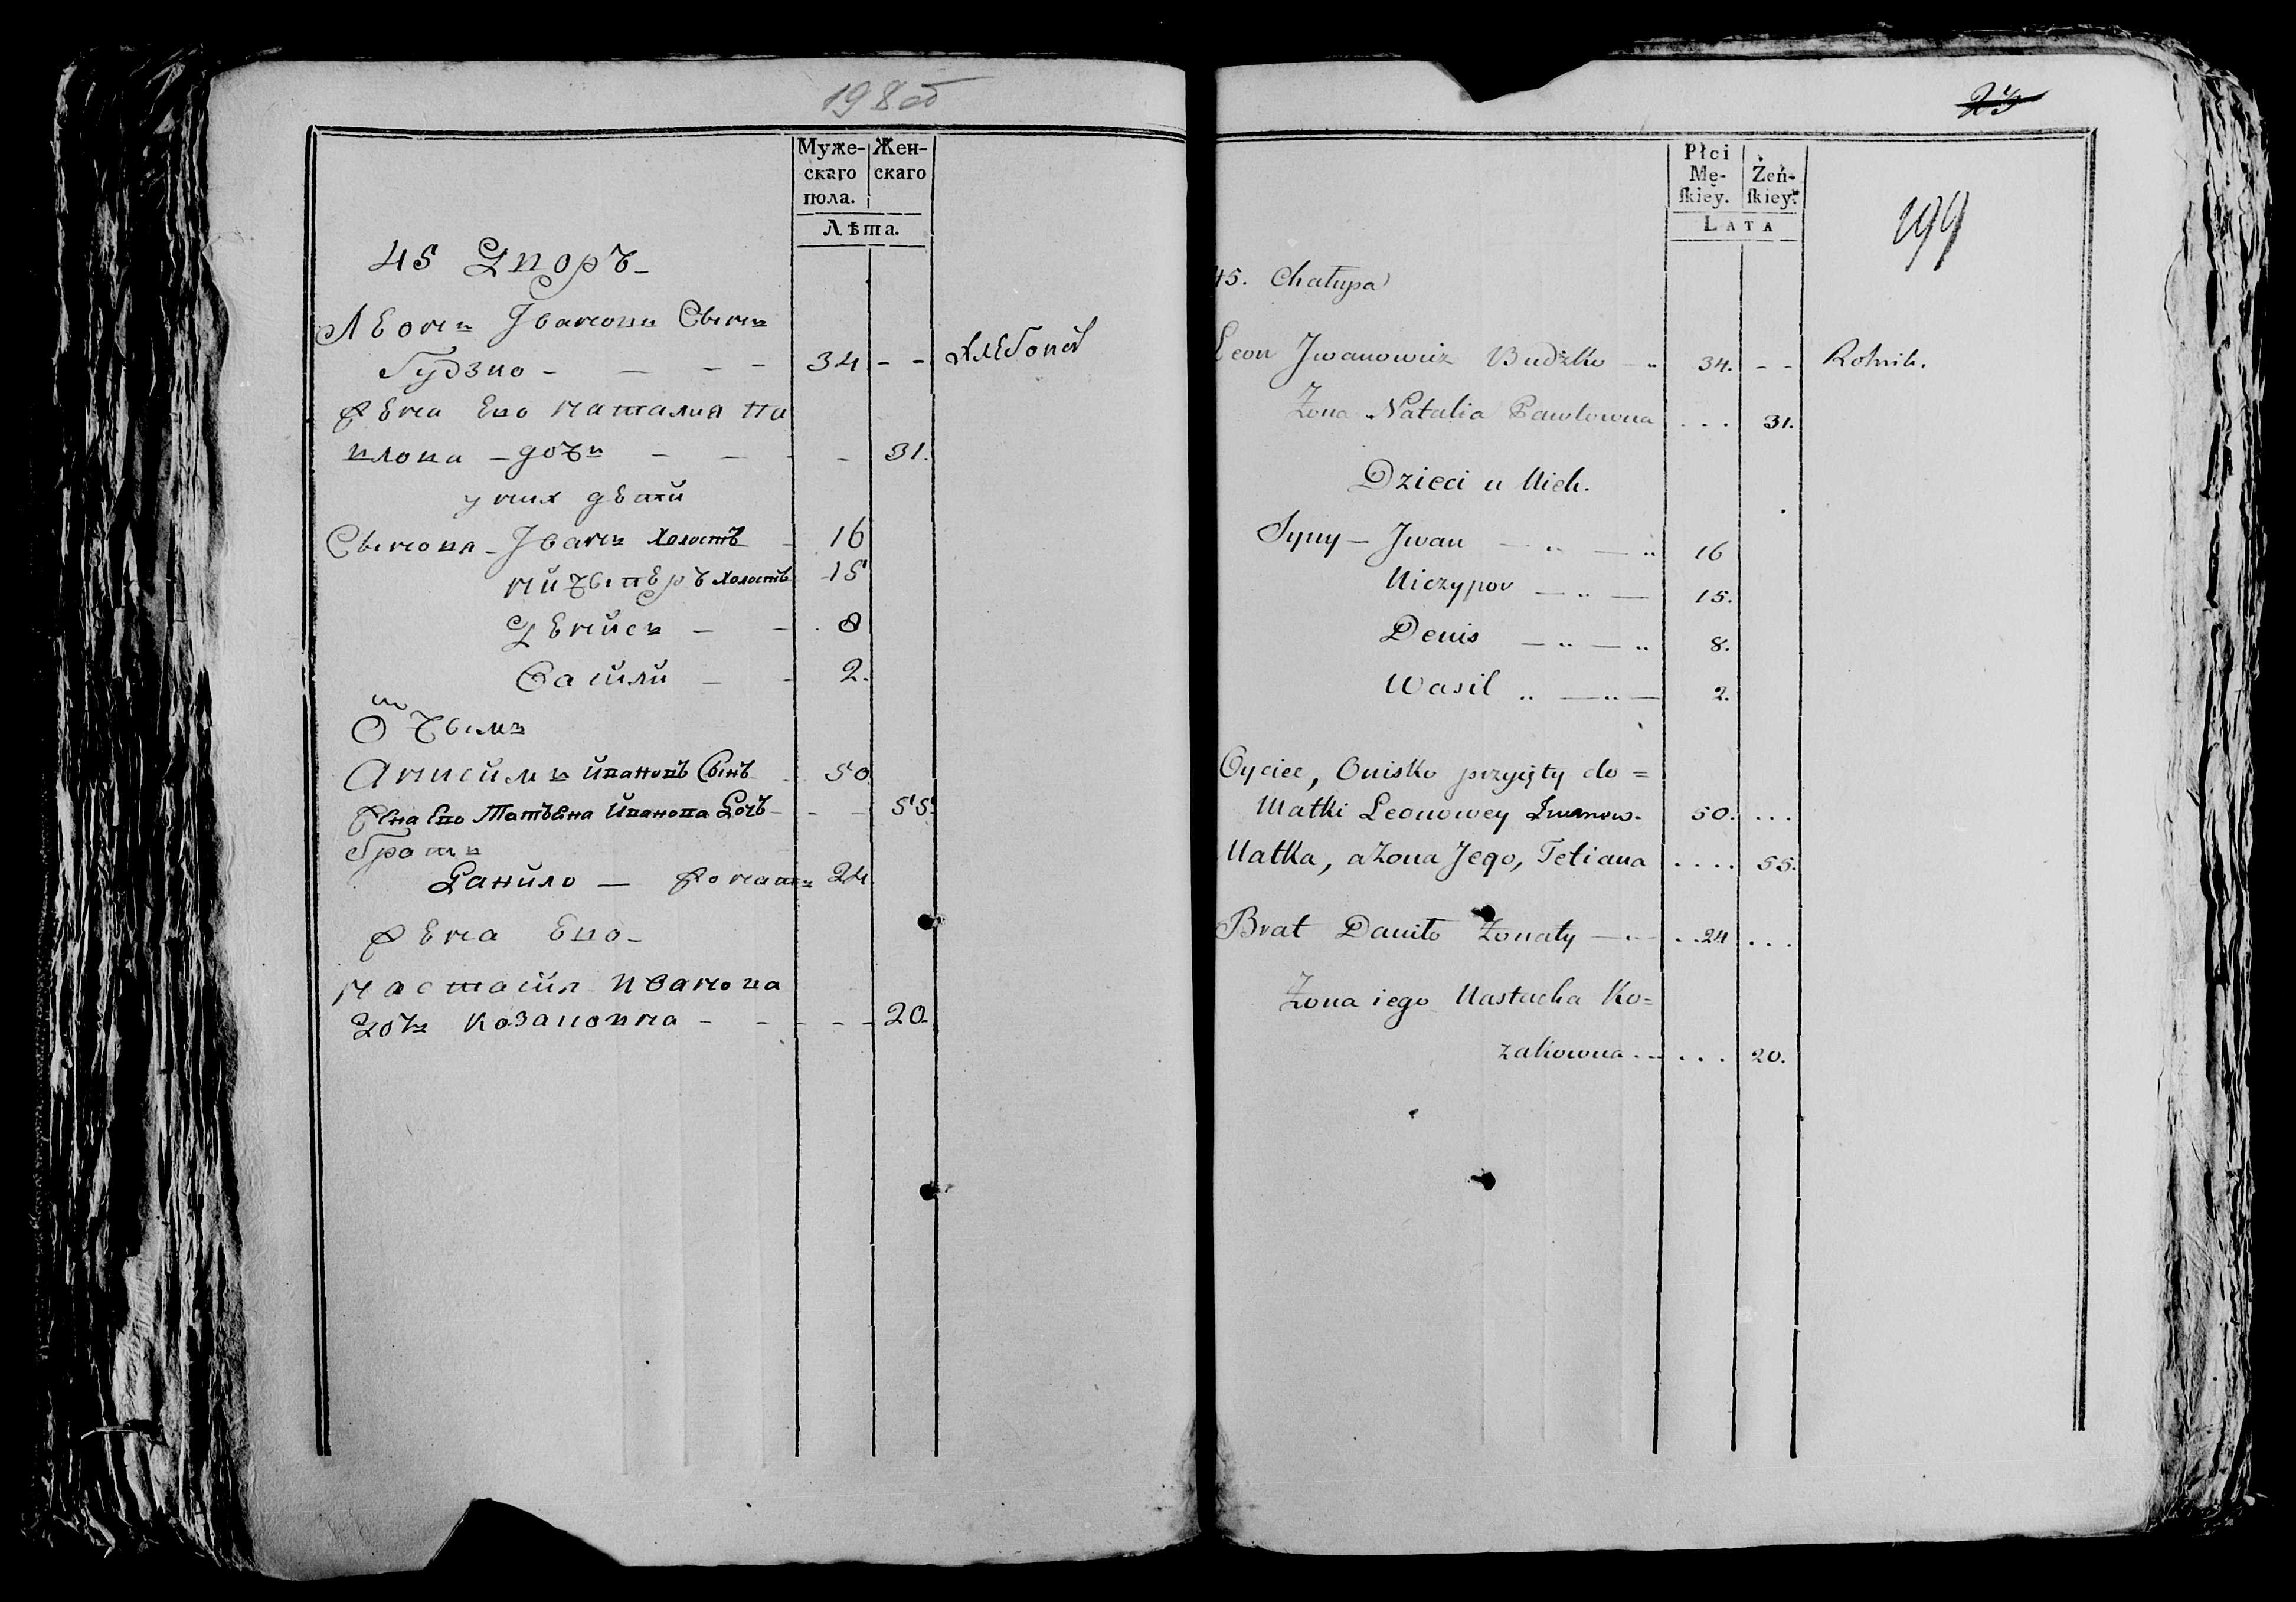 198 об
Муже-
скаго
пола.
Жен-
скаго
Лѣта.
45 Дворъ
Леонъ Івановъ Сынъ
Будзко - 34 - - хлебопа
Жена Ево Наталия Па
влова - дочъ - 31.
у них дѣтй
Сыновя - Іванъ Холостъ - 16
Ничыперъ Холостъ 15
Денисъ - 8
Васйли - 2.
Отчымъ
Анисймъ Ивановъ Сынъ 50
Жена Ево Татьена Иванова Дочъ - - 55.
Братъ
Данило — Жонатъ 24
Жена Ево -
Настасйя Иванова
Дочъ Козаковна - - - - 20.
23
199
Płci
Mę-
ſkiéy.
Żeń-
ſkiey.
LATA
45. Chałupa
Leon Jwanowicz Budźko 34. - - Rolnik.
Żona Natalia Pawłowna . . . 31.
Dzieci u Nich.
Syny — Jwan 16
Niczypor 15.
Denis 8.
Wasil 2.
Oyciec, Onisko przyięty do =
Matki Leonowey Iwanow. 50. . . .
Matka, a Żona Jego, Tetiana . . . . 55.
Brat Daniło Żonaty . . 24 . . .
Żona iego Nastacha Ko=
zakowna . . . . . 20.